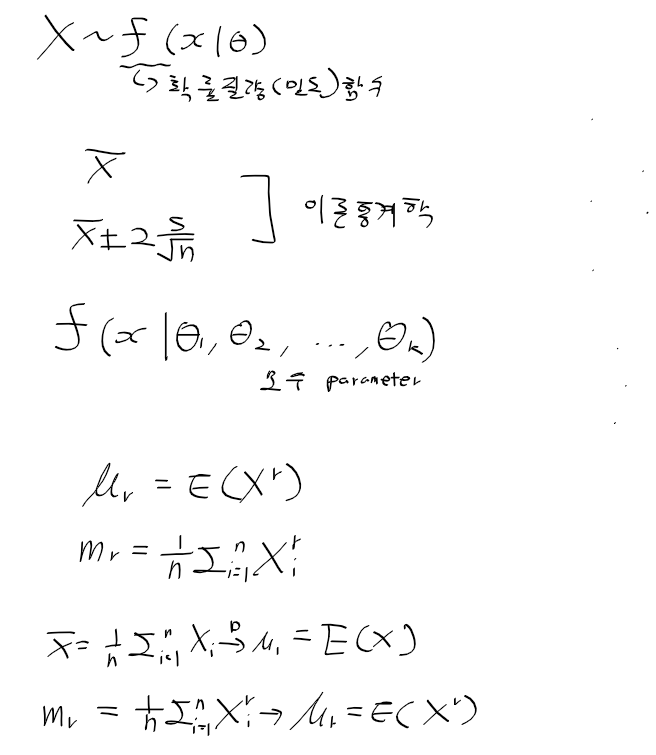 X ~ f(x|θ)
↳ 확률질량(밀도)함수
X̅
X̅ ± 2 S/√n ] 이론통계학
f(x|θ₁, θ₂, ..., θₖ)
모수 parameter
μᵣ = E(Xʳ)
mᵣ = 1/n Σᵢ₌₁ⁿ Xᵢʳ
X̅ = 1/n Σᵢ₌₁ⁿ Xᵢ →ᵖ μ₁ = E(X)
mᵣ = 1/n Σᵢ₌₁ⁿ Xᵢʳ → μᵣ = E(Xʳ)